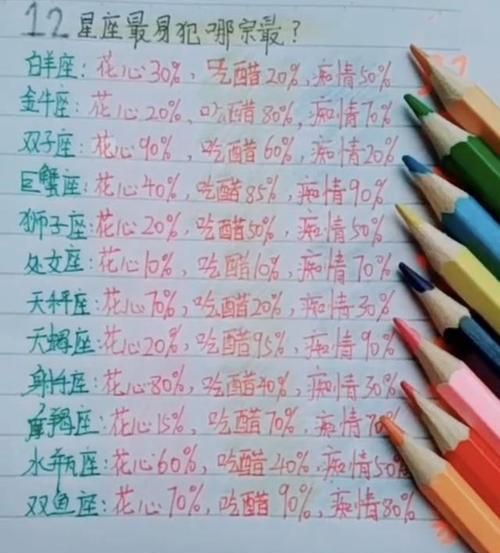 12星座最易犯哪宗最？
白羊座：花心30%，吃醋20%，痴情50%
金牛座：花心20%，吃醋80%，痴情70%
双子座：花心90%，吃醋60%，痴情20%
巨蟹座：花心40%，吃醋85%，痴情90%
狮子座：花心20%，吃醋50%，痴情50%
处女座：花心10%，吃醋10%，痴情70%
天秤座：花心70%，吃醋20%，痴情30%
天蝎座：花心20%，吃醋95%，痴情90%
射手座：花心80%，吃醋40%，痴情30%
摩羯座：花心15%，吃醋70%，痴情70%
水瓶座：花心60%，吃醋40%，痴情50%
双鱼座：花心70%，吃醋90%，痴情80%